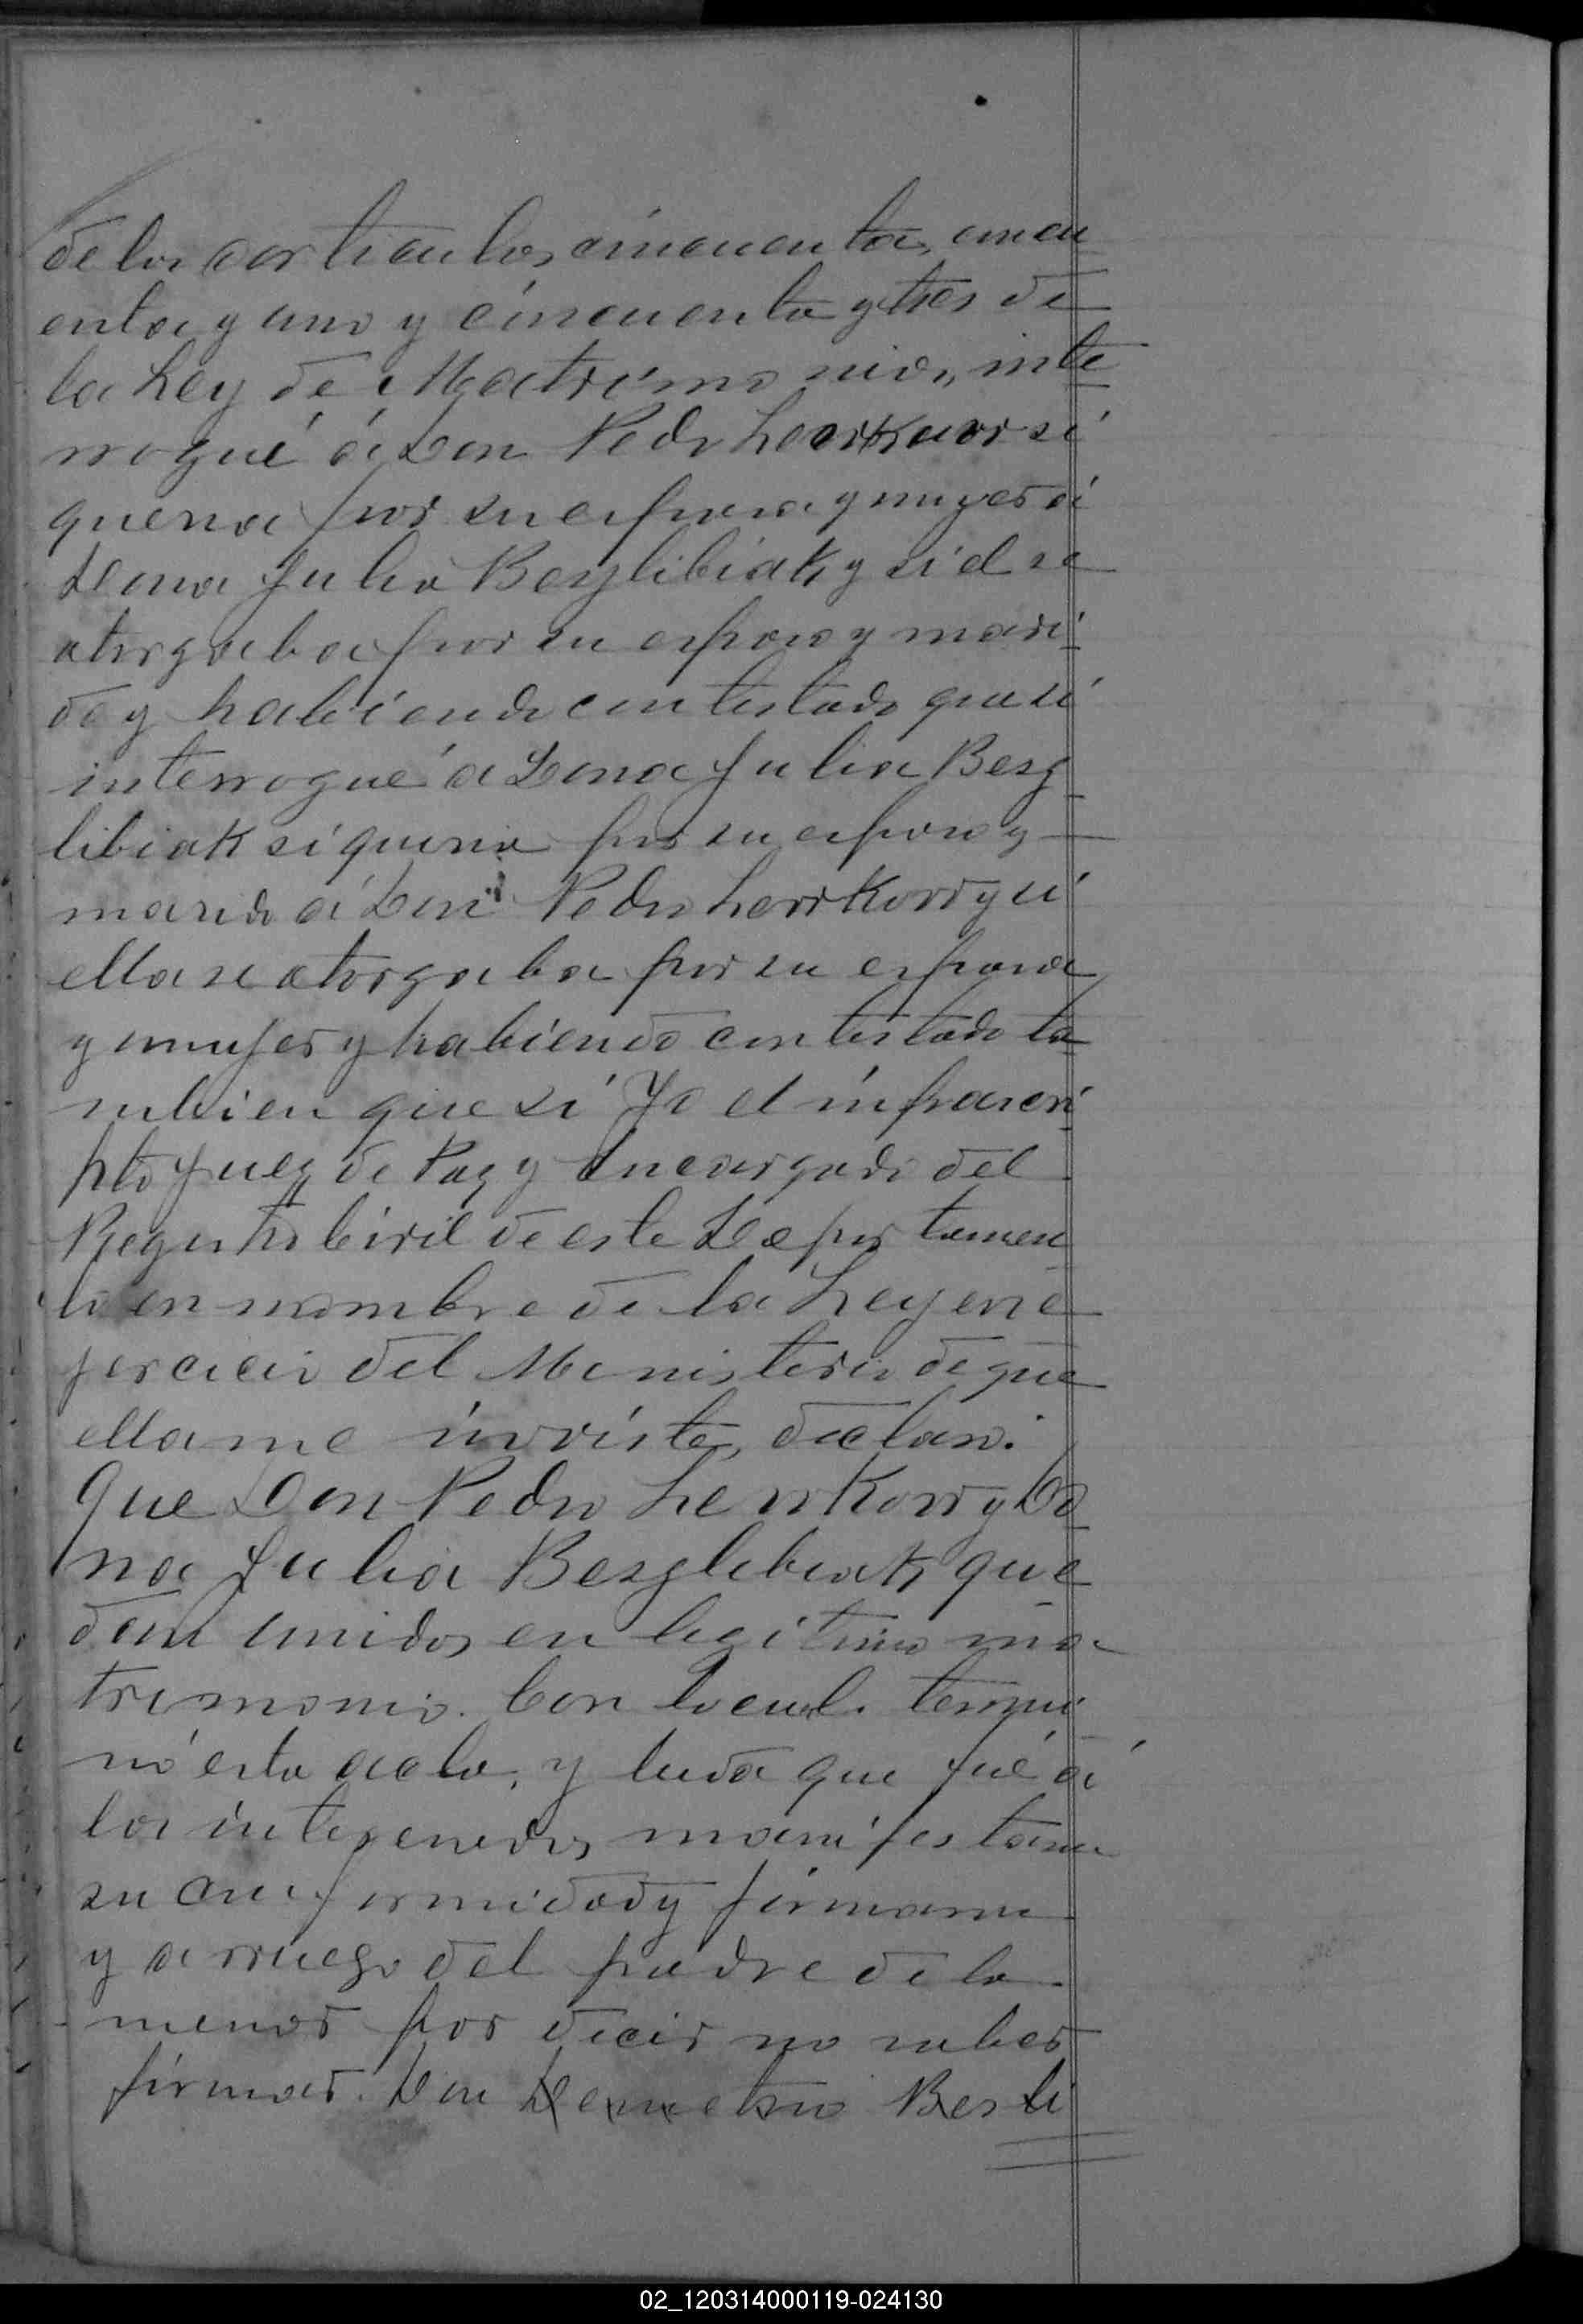 de los articulos cincuenta, cincu
enta y uno y cincuenta y tres de
la Ley de Matrimonio, inte
rrogué á Don Pedro Lewkow si
queria por su esposa y muger á
Dona Julia Bezglibiak y si el se
otorgaba por su esposo y mari
do y habiendo contestado que si
interrogué a Dona Julia Bezg
libiak si queria por su esposo y
marido á Don Pedro Lewkow y si
ella se otorgaba por su esposa
y mujer y habiendo contestado ta
mbien que si Yo el infrascri
pto Juez de Paz y Encargado del
Registro Civil de este Departamen
to en nombre de la Ley en e
jercicio del Ministerio de que
ella me inviste, declaro.
Que Don Pedro Lewkow y Do
na Julia Bezglibiak que
dan unidos en legitimo ma
trimonio. Con lo cual termi
nó esta acta, y leida que fué á
los interesados, manifestaron
su conformidad y firmaron
y a rruego del padre de la
menor por decir no saber
firmar. Don Demetrio